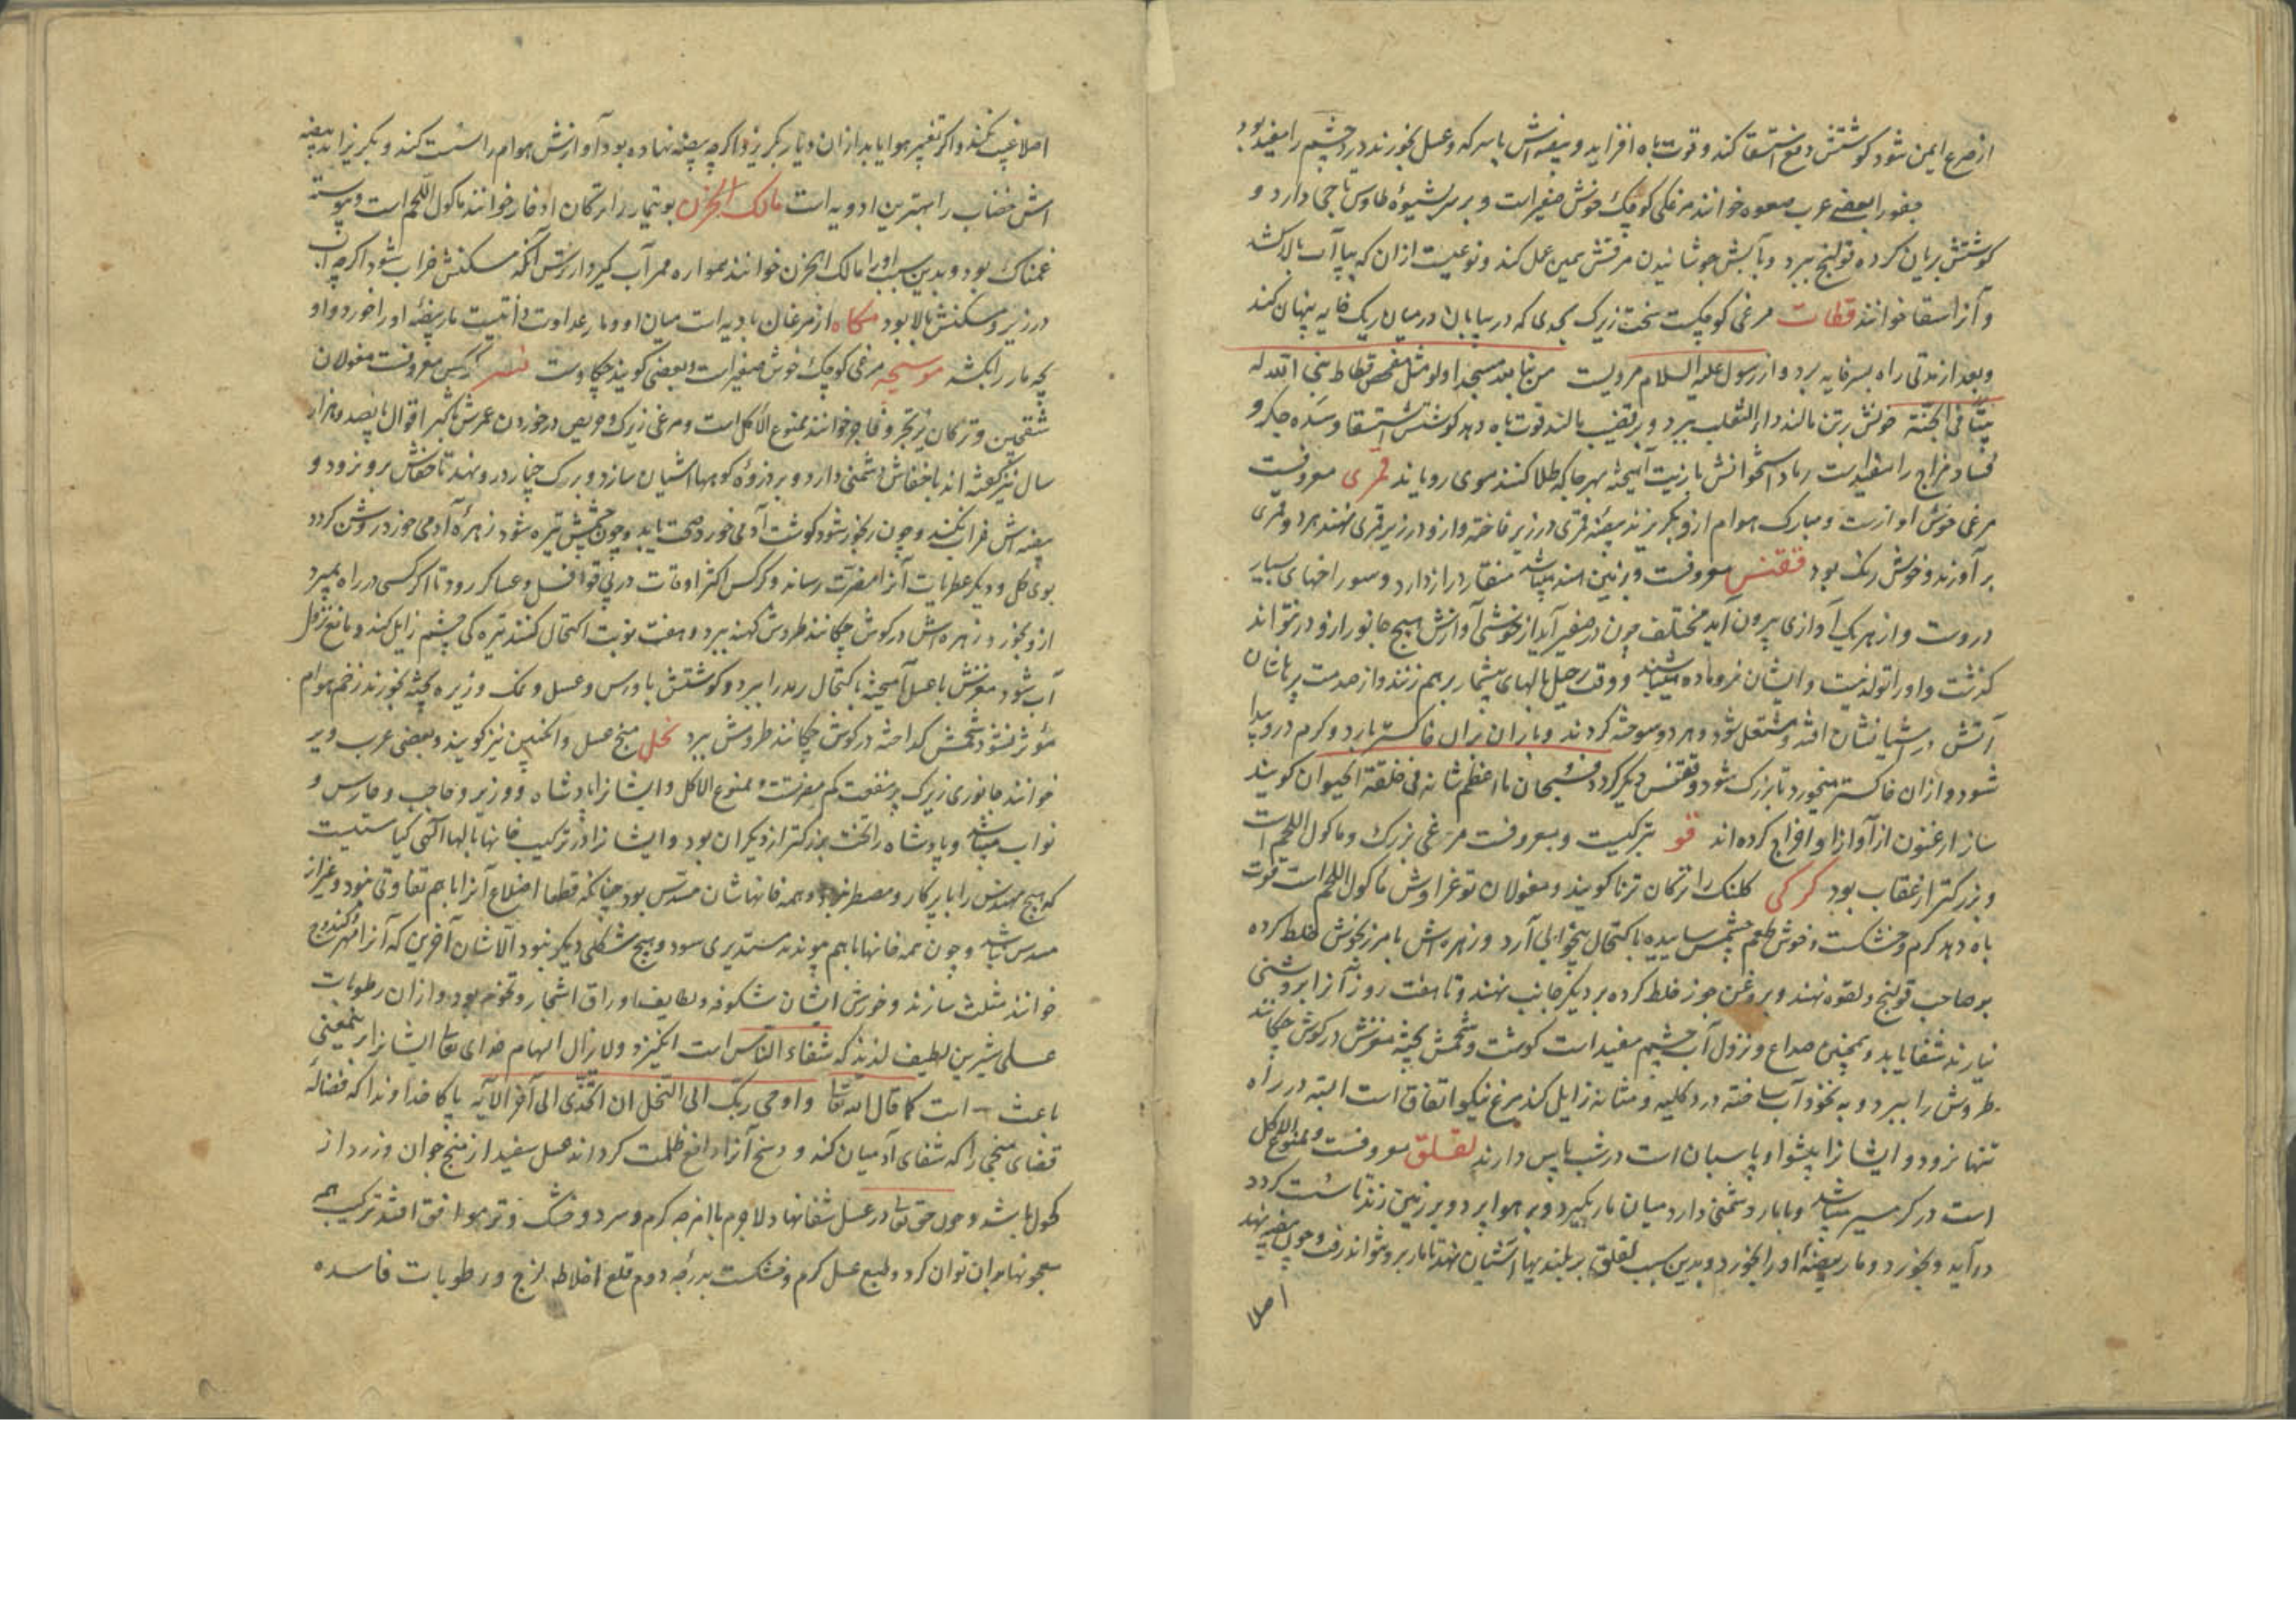 از صرع ایمن شود کوشتش دفع استسقا کند و قوت باه افزاید و بیضه‌اش با سرکه و عسل بخورند درد چشم را مفید بود
عصفور را بعضی عرب صعوه خوانند مرغکی کوچک خوش صفیر است و بر سر بشیوهٔ طاوس تاجی دارد و
کوشتش بریان کرده قولنج ببرد و بآبش جوشانیدن مرقش همین عمل کند و نوعیست ازان که بپا آب بالا کشد
و آنرا سقا خوانند قطات مرغی کوچکست سخت زیرک بحدی که در بیابان در میان ریک خایه پنهان کند
و بعد از مدتی راه بسر خایه برد و از رسول علیه السلام مرویست من بنا لله مسجدا ولو مثل مفحص قطاط بنی الله له
بیتا فی الجنة خونش بر تن مالند داء الثعلب ببرد و بر قضیب مالند قوت باه دهد کوشتش استسقا و سده جکر و
فساد مزاج را مفیدست رماد استخوانش با زیت آمیخته بهر جا که طلا کنند موی رویاند قمری معروفست
مرغی خوش آوازست و مبارک هوام ازو بکریزند بیضهٔ قمری در زیر فاخته و ازو در زیر قمری نهند هر دو قمری
بر آورند و خوش رنک بود ققنس معروفست و بزمین هند میباشد منقار دراز دارد و سوراخهای بسیار
دروست و از هر یک آوازی بیرون آید مختلف چون در صفیر آید از خوشی آوازش هیچ جانور ازو در نتواند
کذشت و او را تولد نیست و ایشان نر و ماده میباشند و وقت رحیل بالهای بیشمار بر هم زنند و از صدمت پرهاشان
آتش در آشیانشان افتد و مشتعل شود و هر دو سوخته کردند و باران بران خاکستر بارد و کرم درو پیدا
شود و ازان خاکستر میخورد تا بزرک شود و ققنس دیکر کردد فسبحان ما اعظم شانه فی خلقة الحیوان کویند
ساز ارغنون از آواز او اخراج کرده‌اند قو بترکیست و معروفست مرغی بزرک و ماکول اللحم است
و بزرکتر از عقاب بود کرکی کلنک را ترکان ترنا کویند و مغولان توغراوش ماکول اللحم است قوت
باه دهد کرم و خشکست و خوش طعم چشمش ساییده باکتحال بیخوابی آرد و زهره‌اش با مرزنخوش خلط کرده
بر صاحب قولنج و لقوه نهند و بروغن جوز خلط کرده بر دیکر جانب نهند و تا هفت روز آنرا بروشنی
نیارند شفا یابد و همچنین صداع و نزول آب چشم مفید است کوشت و شحمش پخته مغزش در کوش چکانند
طروش را ببرد و به نخود آب ساخته درد کلیه و مثانه زایل کند مرغ نیکو اتفاق است البته در راه
تنها نرود و ایشانرا پیشوا و پاسبان است در شب پاس دارند لقلق معروفست و ممنوع الاکل
است در کرمسیر میباشد و با مار دشمنی دارد میان مار بکیرد و بر هوا برد و بر زمین زند تا سست کردد
در آید و بخورد و مار بیضهٔ او را بخورد و بدین سبب لقلق بر بلندیها آشیان نهد تا مار برو نتواند رفت و چون بیضه نهد
اصلا
اصلا غیبت نکند و اکر تغییر هوا یابد ازان دیار بکریزد اکرچه بیضه نهاده بود آوازش هوام را سست کند و بکریزاند بیضه
اش خضاب را بهترین ادویه است مالک الحزن بوتیمار را ترکان اوفار خوانند ماکول اللحم است و پیوسته
غمناک بود و بدین سبب او را مالک الحزن خوانند همواره ممر آب کیرد از ترس آنکه مسکنش خراب شود اکرچه آب
در زیر و مسکنش بالا بود مکاء از مرغان بادیه است میان او و مار عداوت ذاتیست مار بیضهٔ او را خورد و او
بچه مار را بکشد موسیچه مرغی کوچک خوش صفیر است و بعضی کویند چکاوست نسر کرکس معروفست مغولان
شقجین و ترکان خوانند ممنوع الاکل است و مرغی زیرک و حریص در خوردن عمرش باکثر اقوال پانصد و هزار
سال نیز کفته‌اند با خفاش دشمنی دارد و بر ذروهٔ کوهها آشیان سازد و برک چنار درو نهد تا خفاش برو نرود و
بیضه‌اش خراب نکند و چون رنجور شود کوشت آدمی خورد صحت یابد و چون چشمش تیره شود زهرهٔ آدمی خورد روشن کردد
بوی کل و دیکر عطریات آنرا مضرت رساند و کرکس اکثر اوقات در پی قوافل و عساکر رود تا اکر کسی در راه بمیرد
ازو بخورد زهره‌اش در کوش چکانند طروش کهنه ببرد و هفت نوبت اکتحال کنند تیره کی چشم زایل کند و مانع نزول
آب شود مغزش با عسل آمیخته باکتحال رمد را ببرد و کوشتش با ورس و عسل و نمک و زیره پخته بخورند زخم هوام
مؤثر نشود شحمش کداخته در کوش چکانند طروش ببرد نحل منج عسل و انکبین نیز کویند و بعضی عرب دبر
خوانند جانوری زیرک پر منفعت کم مضرتست و ممنوع الاکل و ایشانرا پادشاه و وزیر و حاجب و حارس و
نواب میباشد و پادشاه را تخت بزرکتر از دیکران بود و ایشانرا در ترکیب خانها بالها آکهی کیاستیست
که هیچ مهندس را با پرکار و مصطر نبود و همه خانهاشان مسدس بود چنانکه قطعا اضلاع آنرا با هم تفاوتی نبود و غیر از
مسدس نباشد و چون همه خانها با هم پیوندند مستدیری شود و هیچ شکلی دیکر نبود الا شان آخرین که آنرا مهر کندوج
خوانند مثلث سازند و خورش ایشان شکوفه و لطایف اوراق اشجار و تخوم بود و ازان رطوبات
عسلی شیرین لطیف لذیذ که شفاء الناس است انکیزد و لایزال الهام خدای تعالی ایشانرا برینمعنی
باعث است کما قال الله تعالی و اوحی ربک الی النحل ان اتخذی الی آخر الآیه پاکا خداوندا که فضاله
قضای منجی را که شفای آدمیان کند و وسخ آنرا دافع ظلمت کرداند عسل سفید از منج جوان و زرد از
کهول باشد و چون حق تعالی در عسل شفا نهاد لاجرم با امزجه کرم و سرد و خشک و تر موافق افتد ترکیب همه
معجونها بران توان کرد و طبع عسل کرم و خشکست بدرجه دوم قلع اخلاط لزج و رطوبات فاسده